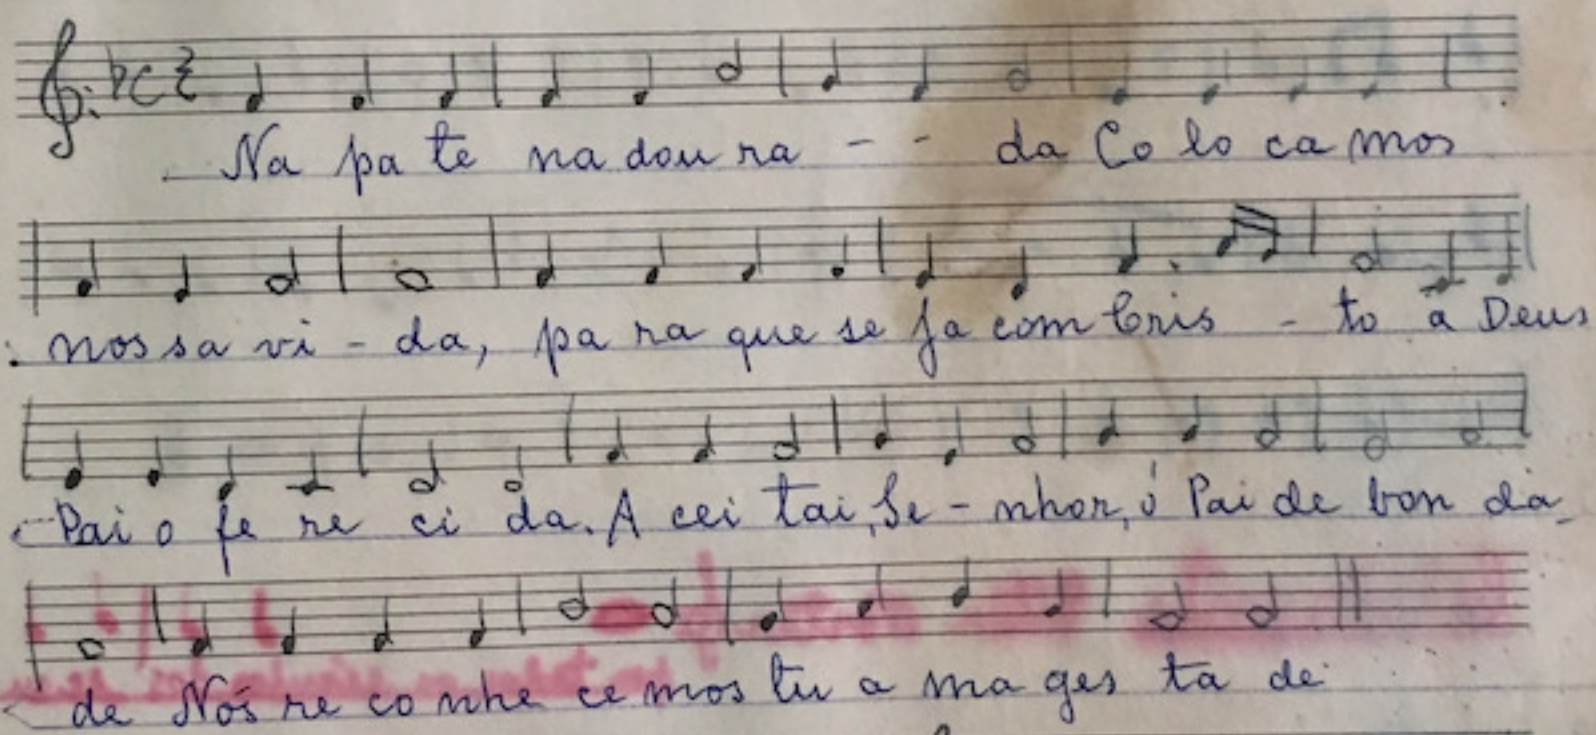 Na pa te na dou ra - - da Co lo ca mos
nos sa vi - da, pa ra que se ja com Cris - to a Deus
Pai o fe re ci da. A cei tai, Se - nhor, ó Pai de bon da
de Nós re co nhe ce mos tu a ma ges ta de